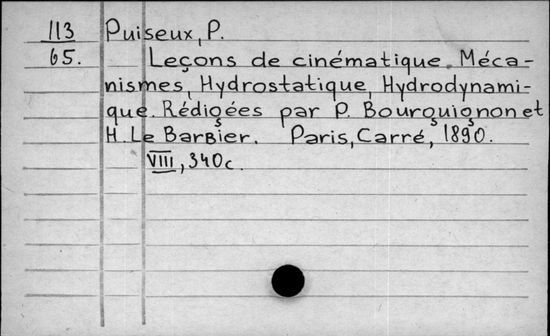 113 Puiseux, P.
65. Leçons de cinématique. Méca-
nismes, Hydrostatique, Hydrodynami-
que. Rédigées par P. Bourguignon et
H. Le Barbier. Paris, Carré, 1890.
VIII, 340 c.